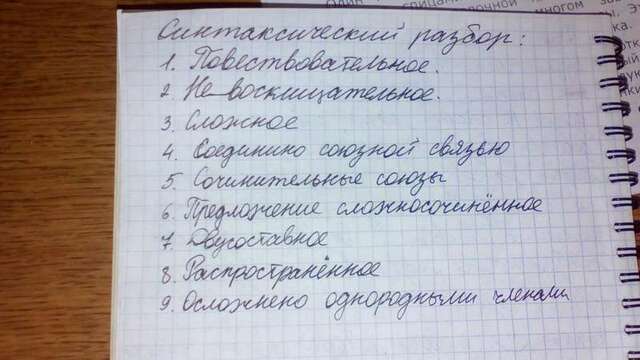 Синтаксический разбор:
1. Повествовательное.
2. Не восклицательное.
3. Сложное
4. Соединино союзной связью
5. Сочинительные союзы
6. Предложение сложносочинённое
7. Двусоставное
8. Распространённое
9. Осложнено однородными членами